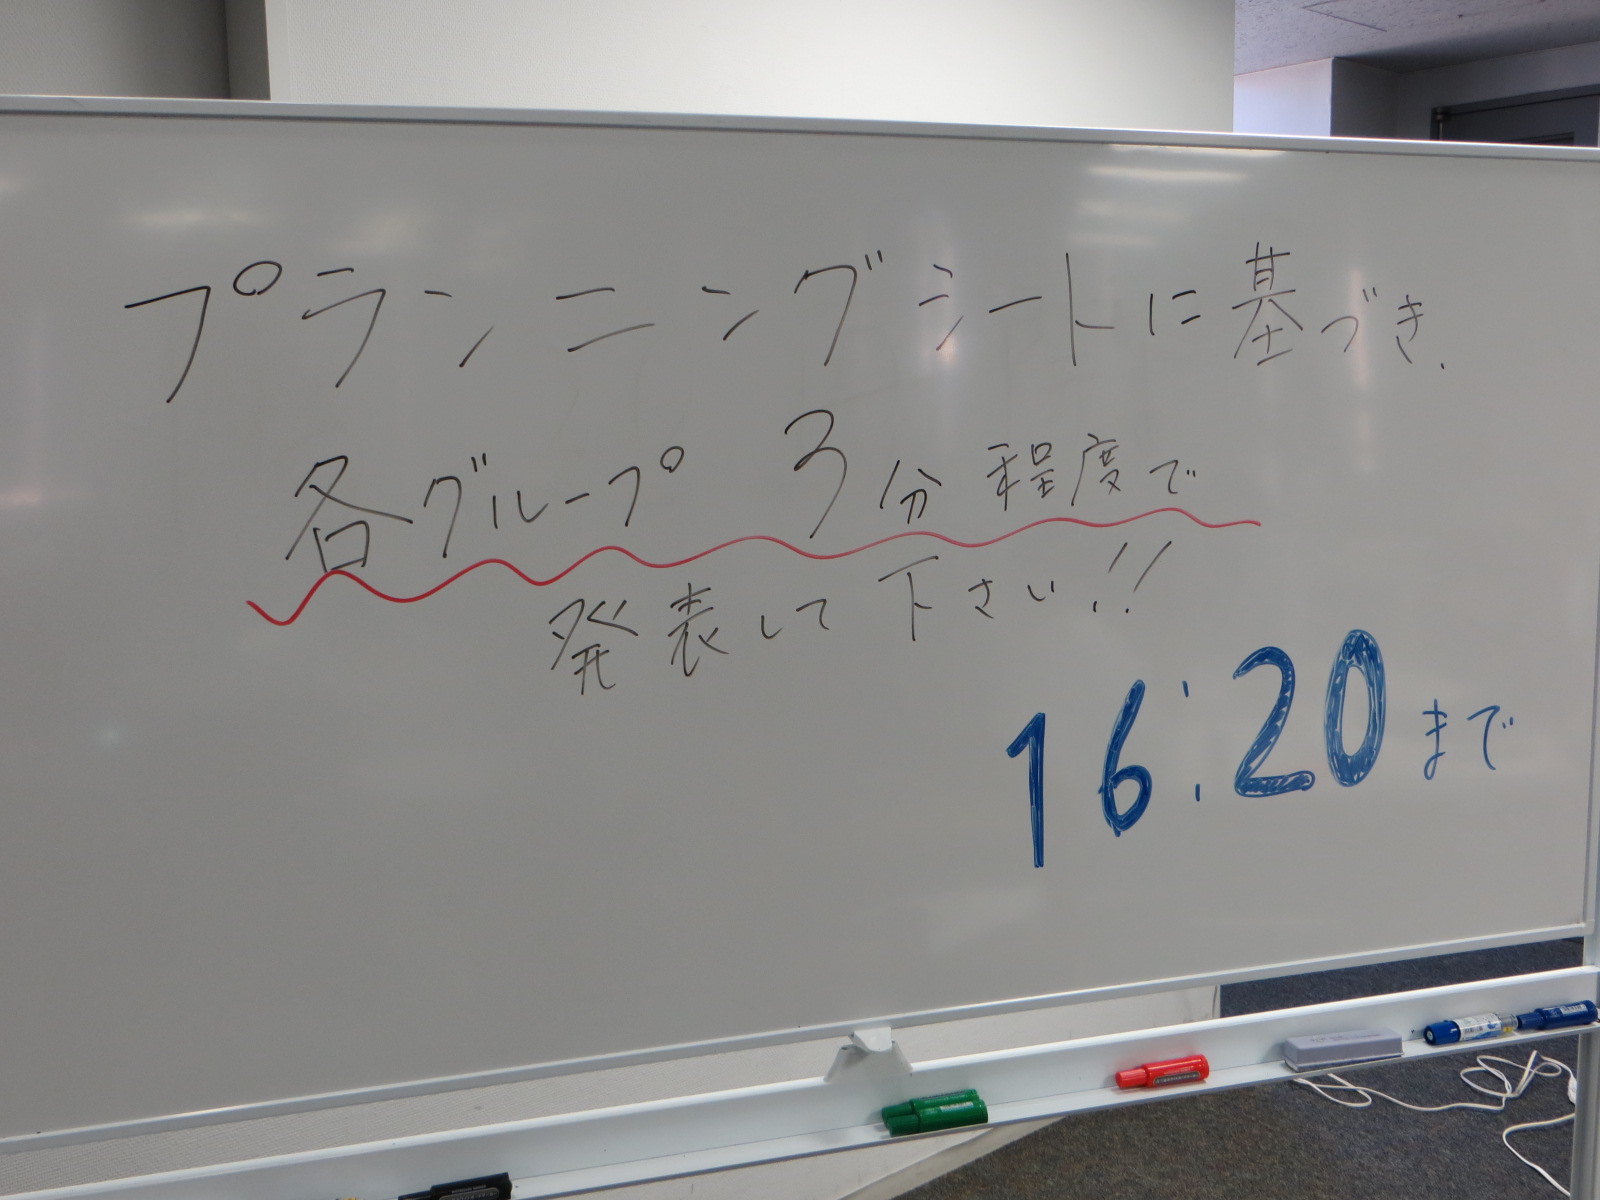 プランニングシートに基づき、
各グループ 3分程度で
発表して下さい!!
16:20まで